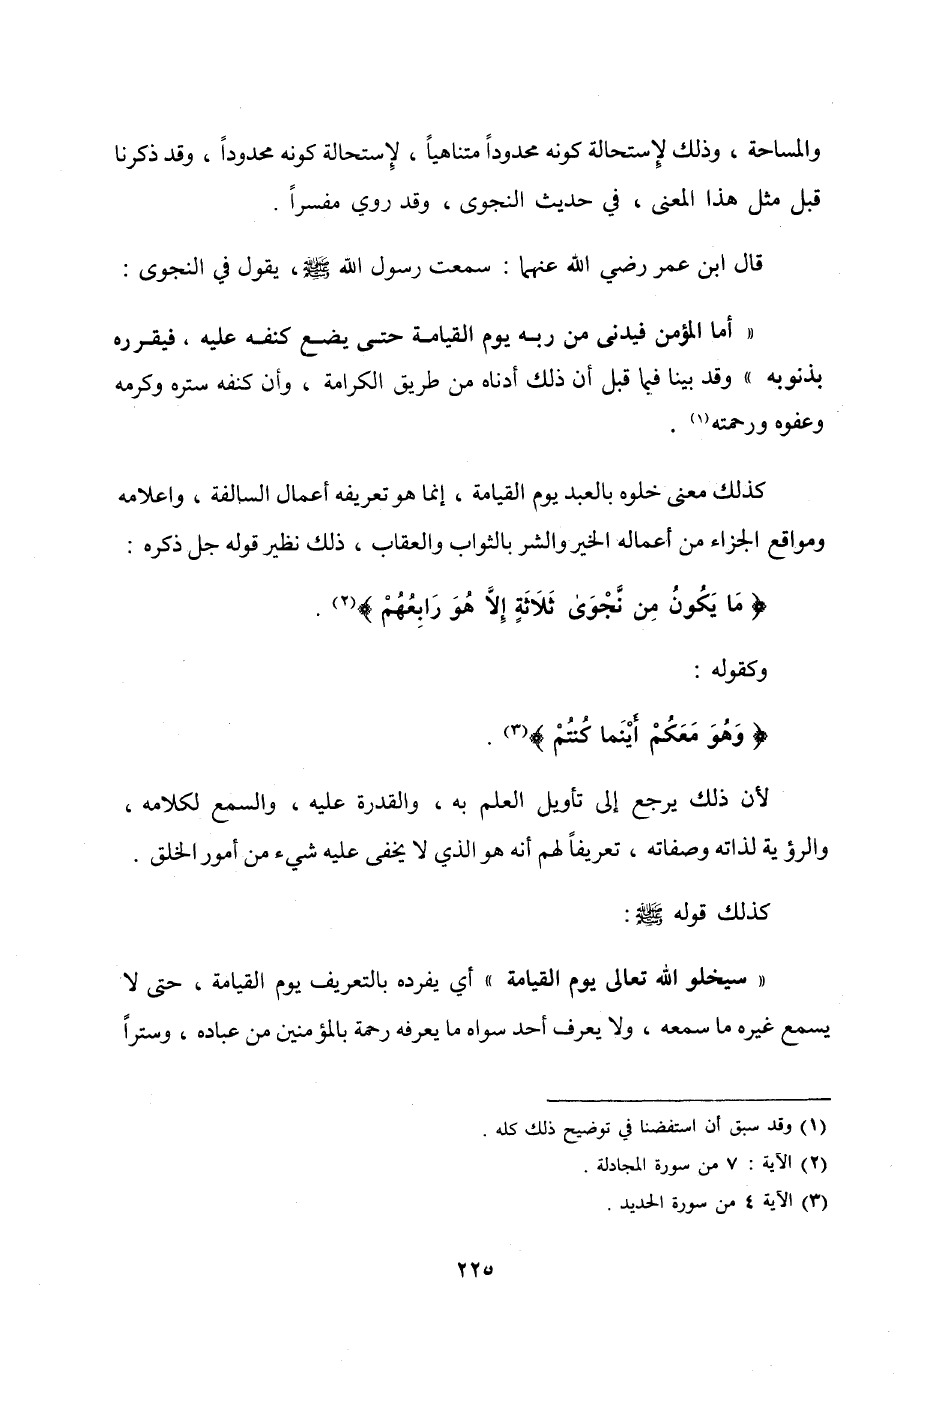 والمساحة ، وذلك لإستحالة كونه محدوداً متناهياً ، لإستحالة كونه محدوداً ، وقد ذكرنا
قبل مثل هذا المعنى ، في حديث النجوى ، وقد روي مفسراً .
قال ابن عمر رضي الله عنهما : سمعت رسول الله ﷺ ، يقول في النجوى :
« أما المؤمن فيدنى من ربه يوم القيامة حتى يضع كنفه عليه ، فيقرره
بذنوبه » وقد بينا فيما قبل أن ذلك أدناه من طريق الكرامة ، وأن كنفه ستره وكرمه
وعفوه ورحمته(١) .
كذلك معنى خلوه بالعبد يوم القيامة ، إنما هو تعريفه أعمال السالفة ، واعلامه
ومواقع الجزاء من أعماله الخير والشر بالثواب والعقاب ، ذلك نظير قوله جل ذكره :
﴿ مَا يَكُونُ مِن نَّجْوَىٰ ثَلَاثَةٍ إِلَّا هُوَ رَابِعُهُمْ ﴾(٢) .
وكقوله :
﴿ وَهُوَ مَعَكُمْ أَيْنَما كُنتُمْ ﴾(٣) .
لأن ذلك يرجع إلى تأويل العلم به ، والقدرة عليه ، والسمع لكلامه ،
والرؤية لذاته وصفاته ، تعريفاً لهم أنه هو الذي لا يخفى عليه شيء من أمور الخلق .
كذلك قوله ﷺ :
« سيخلو الله تعالى يوم القيامة » أي يفرده بالتعريف يوم القيامة ، حتى لا
يسمع غيره ما سمعه ، ولا يعرف أحد سواه ما يعرفه رحمة بالمؤمنين من عباده ، وستراً
(١) وقد سبق أن استفضنا في توضيح ذلك كله .
(٢) الآية : ٧ من سورة المجادلة .
(٣) الآية ٤ من سورة الحديد .
٢٢٥